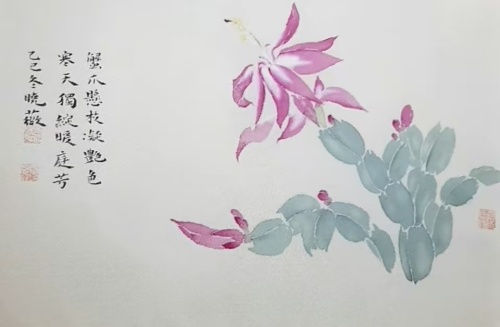 蟹爪懸枝凝艷色
寒天獨綻暖庭芳
乙巳冬曉薇